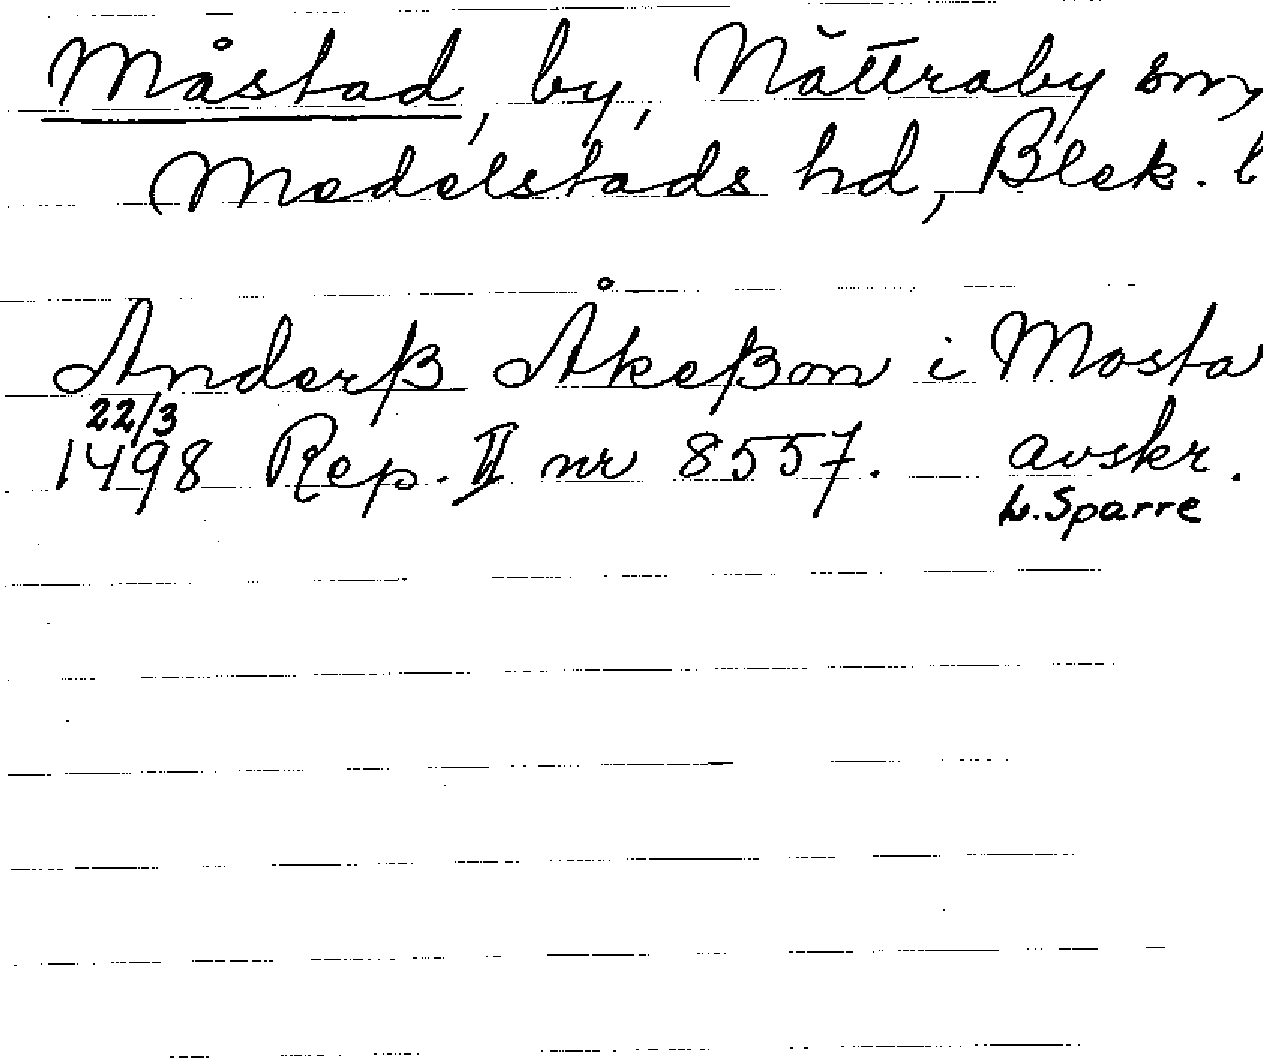 Måstad, by, Nättraby sn,
Medelstads hd, Blek. l
Anderß Åkeßon i Mosta
22/3
1498 Rep. II nr 8557. avskr.
L. Sparre